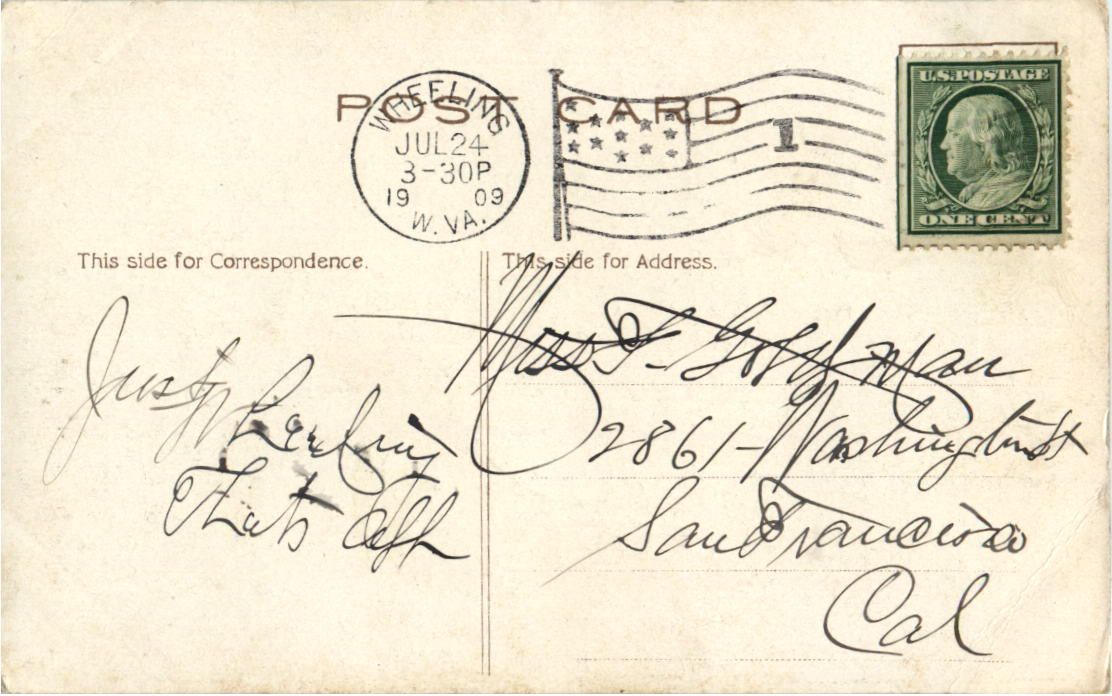 POST CARD
WHEELING
JUL 24
3-30P
1909
W. VA.
1
U.S. POSTAGE
ONE CENT
This side for Correspondence.
This side for Address.
Just
Thats all
Miss F. Goldman
2861 - Washington St
San Francisco
Cal